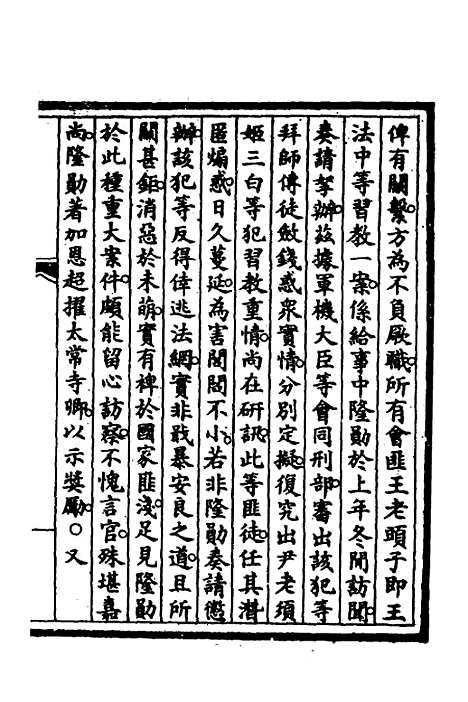 俾有關繫○方為不負厥職○所有會匪王老頭子即王
法中等習教一案○係給事中隆勛於上年冬間訪聞○
奏請拏辦○茲據軍機大臣等會同刑部○審出該犯等
拜師傳徒斂錢惑眾實情○分別定擬○復究出尹老須
姬三白等犯習教重情○尚在研訊○此等匪徒○任其潛
匿煽惑○日久蔓延○為害閭閻不小○若非隆勛奏請懲
辦○該犯等反得倖逃法網○實非戢暴安良之道○且所
關甚鉅○消惡於未萌○實有裨於國家匪淺○足見隆勛
於此種重大案件○頗能留心訪察○不愧言官○殊堪嘉
尚○隆勛著加恩超擢太常寺卿○以示獎勵○○又